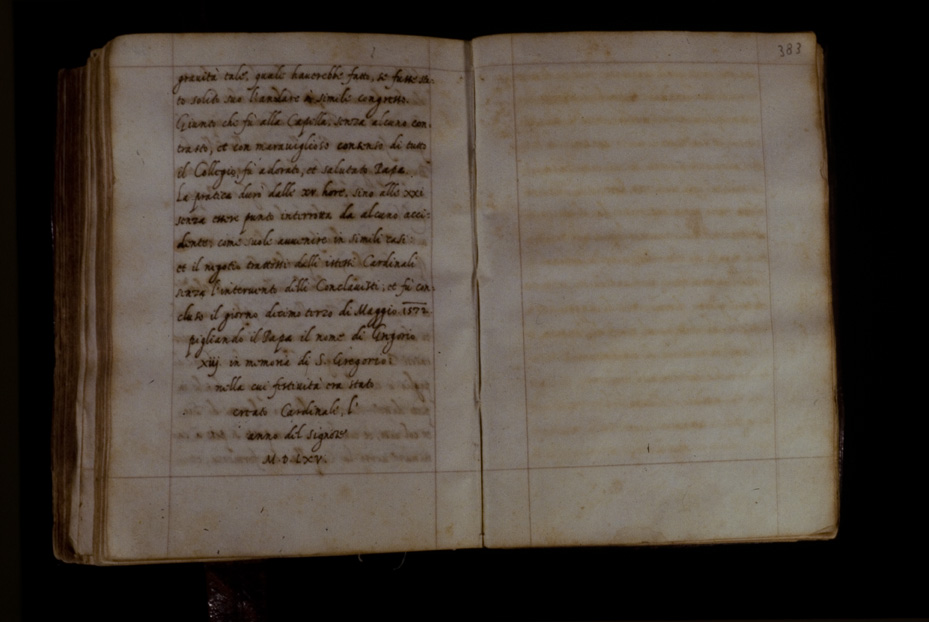 383
grauità tale, quale hauerebbe fatto, se fusse sta-
to solito suo l'andare à simile congresso.
Giunto che fù alla Capella, senza alcuno con-
trasto, et con marauiglioso consenso di tutto
il Collegio, fù adorato, et salutato Papa.
La pratica durò dalle xv. hore, sino alle xxi
senza essere punto interrotta da alcuno acci-
dente, come suole auuenire in simili casi:
et il negotio trattossi dalli istessi Cardinali
senza l'interuento delli Conclauisti, et fù con-
cluso il giorno decimo terzo di Maggio 1572
pigliando il Papa il nome di Gregorio
xiij. in memoria di S. Gregorio
nella cui festiuità era stato
creato Cardinale, l'
anno del Signore
M D LXV.